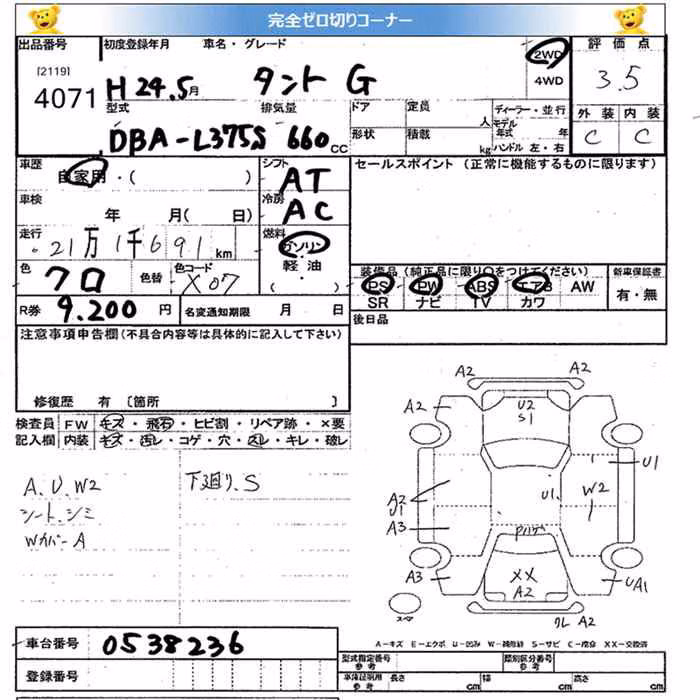 完全ゼロ切りコーナー
出品番号 初度登録年月 車名・グレード 2WD 評価点
[2119]
4071 H 24.5月 タント G 4WD 3.5
型式 排気量 ドア 定員 人 ディーラー・並行 外装 内装
モデル年式 年
DBA-L375S 660cc 形状 積載 kg ハンドル 左・右 C C
車歴 自家用・( ) シフト AT セールスポイント (正常に機能するものに限ります)
車検 年 月( 日) 冷房 AC
走行 21万1千691km 燃料 ガソリン
軽油
( ・ )
色 クロ 色替 色コード X07 装備品 (純正品に限り○をつけてください) 新車保証書
PS PW ABS エアB AW 有・無
SR ナビ TV カワ
R券 9.200円 名変通知期限 月 日 後日品
注意事項申告欄(不具合内容等は具体的に記入して下さい)
修復歴 有 〔箇所 〕
検査員 FW キズ・飛石・ヒビ割・リペア跡・×要
記入欄 内装 キズ・汚レ・コゲ・穴・スレ・キレ・破レ
A.U.W2 下廻り.S
シート.シミ
WカバーA
A2 A2
A2 U2 S1
U1
A2 U1 U1 W2
A3 Pハゲ
A3 XX UA1
A2
クレ A2
A−キズ E−エクボ U−凹み W−補修跡 S−サビ C−腐食 XX−交換済
車台番号 0538236 型式指定番号 参考 類別区分番号 参考
登録番号 車庫証明用 参考 長さ cm 幅 cm 高さ cm